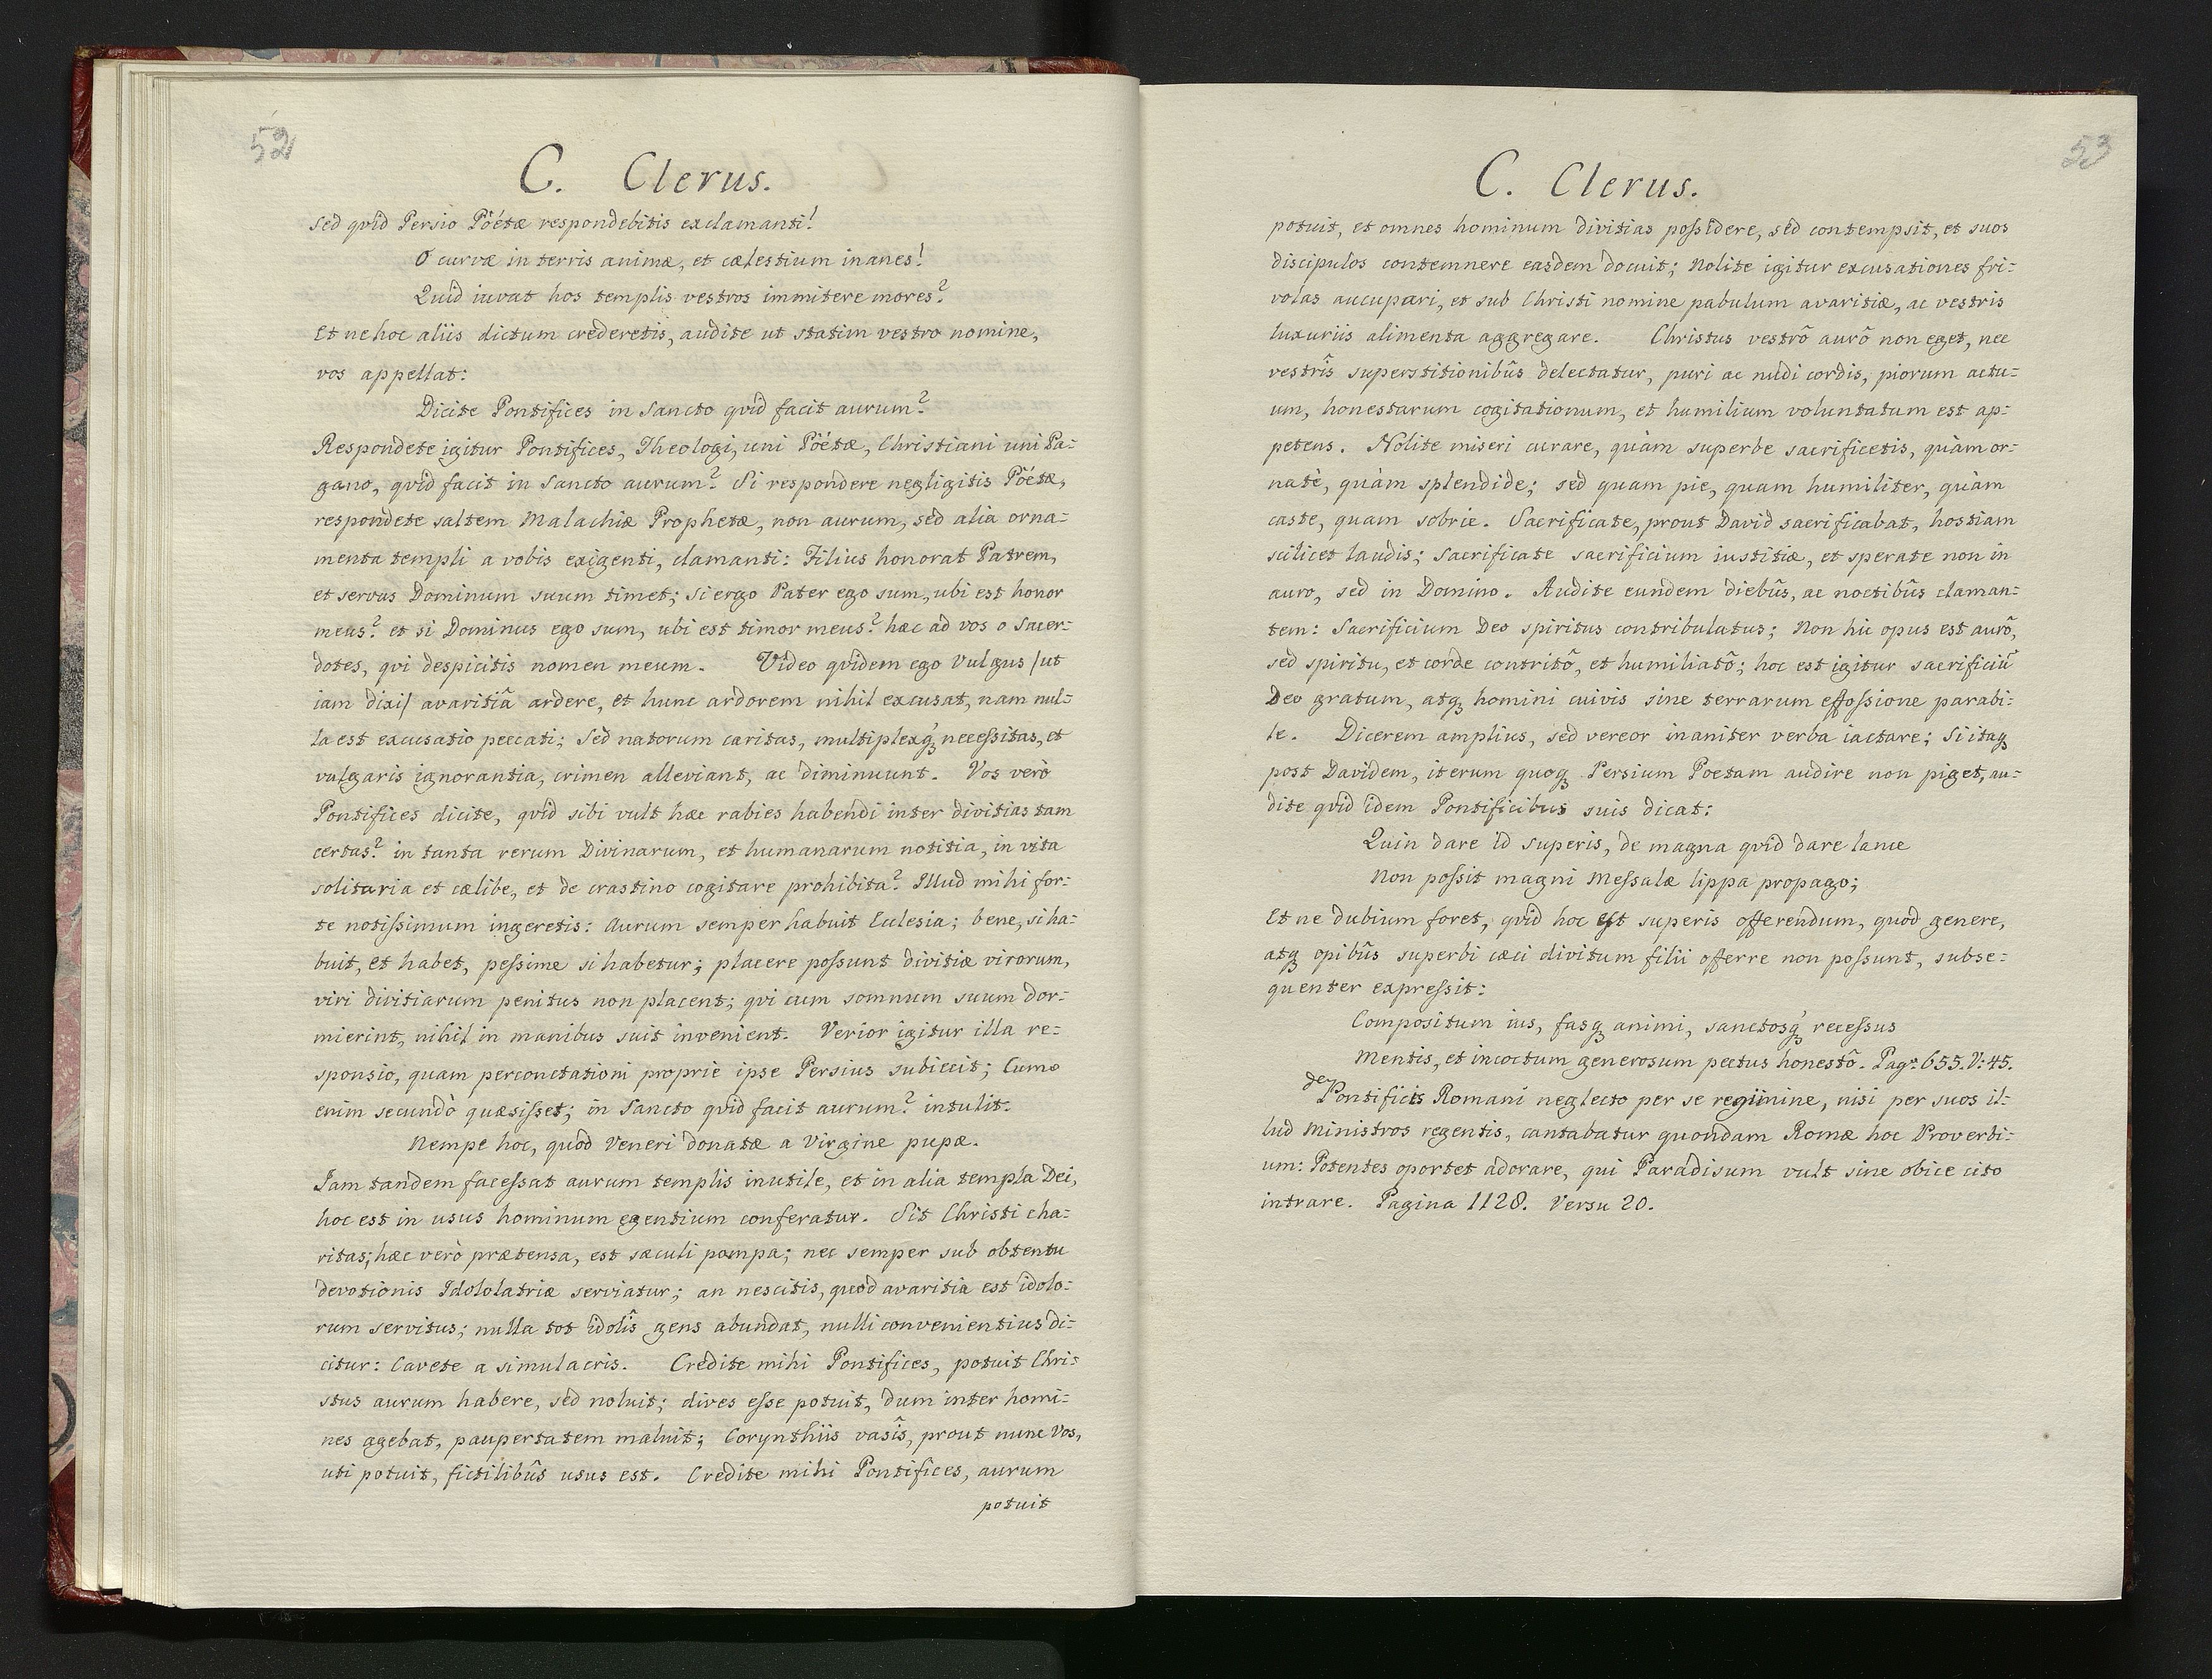 52
C. Clerus.
sed qvid Persio Pöétæ respondebitis exclamanti!
O curvæ in terris animæ, et cælestium inanes!
Quid iuvat hos templis vestros immitere mores?
Et ne hoc aliis dictum crederetis, audite ut statim vestro nomine,
vos appellat:
Dicite Pontifices in Sancto qvid facit aurum?
Respondete igitur Pontifices, Theologi, uni Pöétæ, Christiani uni Pa=
gano, qvid facit in Sancto aurum? Si respondere negligitis Pöétæ,
respondete saltem Malachiæ Prophetæ, non aurum, sed alia orna=
menta templi a vobis exigenti, clamanti: Filius honorat Patrem,
et servus Dominum suum timet; si ergo Pater ego sum, ubi est honor
meus? et si Dominus ego sum, ubi est timor meus? hæc ad vos o Sacer=
dotes, qvi despicitis nomen meum. Video qvidem ego Vulgus /ut
iam dixi/ avaritiâ ardere, et hunc ardorem nihil excusat, nam nul=
la est excusatio peccati; Sed natorum caritas, multiplexq́ꝫ necessitas, et
vulgaris ignorantia, crimen alleviant, ac diminuunt. Vos verò
Pontifices dicite, qvid sibi vult hæc rabies habendi inter divitias tam
certas? in tanta rerum Divinarum, et humanarum notitia, in vita
solitaria et cælibe, et de crastino cogitare prohibita? Illud mihi for=
te notissimum ingeretis: Aurum semper habuit Ecclesia; bene, si ha=
buit, et habet, pessime si habetur; placere possunt divitiæ virorum,
viri divitiarum penitus non placent; qvi cum somnum suum dor=
mierint, nihil in manibus suit invenient. Verior igitur illa re=
sponsio, quam perconctationi proprie ipse Persius subiecit; Cum
enim secundò quæsisset; in Sancto qvid facit aurum? intulit:
Nempe hoc, quod Veneri donatæ a Virgine pupæ.
Jam tandem facessat aurum templis inutile, et in alia templa Dei,
hoc est in usus hominum egentium conferatur. Sit Christi cha=
ritas; hæc verò prætensa, est sæculi pompa; nec semper sub obtentu
devotionis Idololatriæ serviatur; an nescitis, quod avaritia est idolo=
rum servitus; nulla tot idolîs gens abundat, nulli convenientius di=
citur: Cavete a simulacris. Credite mihi Pontifices, potuit Chri=
stus aurum habere, sed noluit; dives esse potuit, dum inter homi=
nes agebat, paupertatem maluit; Corynthiis vasîs, prout nunc Vos,
uti potuit, fictilibûs usus est. Credite mihi Pontifices, aurum
potuit
53
C. Clerus.
potuit, et omnes hominum divitias possidere, sed contempsit, et suos
discipulos contemnere easdem docuit; Nolite igitur excusationes fri=
volas aucupari, et sub Christi nomine pabulum avaritiæ, ac vestris
luxuriis alimenta aggregare. Christus vestrô aurô non eget, nec
vestrîs superstitionibûs delectatur, puri ac nudi cordis, piorum actu=
um, honestarum cogitationum, et humilium voluntatum est ap=
petens. Nolite miseri curare, quàm superbe sacrificetis, quàm or=
natè, quàm splendide; sed quam pie, quam humiliter, quàm
caste, quam sobrie. Sacrificate, prout David sacrificabat, hostiam
scilicet laudis; Sacrificate sacrificium iustitiæ, et sperate non in
auro, sed in Domino. Audite eundem diebûs, ac noctibûs claman=
tem: Sacrificium Deo spiritus contribulatus; Non hic opus est aurô,
sed spiritu, et corde contritô, et humiliatô; hoc est igitur sacrificiũ
Deo gratum, atqꝫ homini cuivis sine terrarum effossione parabi=
le. Dicerem amplius, sed vereor inaniter verba iactare; Si itaqꝫ
post Davidem, iterum quoqꝫ Persium Poetam audire non piget, au=
dite qvid idem Pontificibus suis dicat:
Quin dare id superis, de magna qvid dare lance
Non possit magni Messalæ lippa propago;
Et ne dubium foret, qvid hoc est superis offerendum, quod genere,
atqꝫ opibûs superbi cæci divitum filii offerre non possunt, subse=
quenter expressit:
Compositum ius, fasqꝫ animi, sanctosq́ꝫ recessus
Mentis, et incoctum generosum pectus honestô. Pag: 655. V: 45.
de Pontificis Romani neglecto per se regimine, nisi per suos il=
lud Ministros regentis, cantabatur quondam Romæ hoc Proverbi=
um: Potentes oportet adorare, qui Paradisum vult sine obice cito
intrare. Pagina 1128. Versu 20.